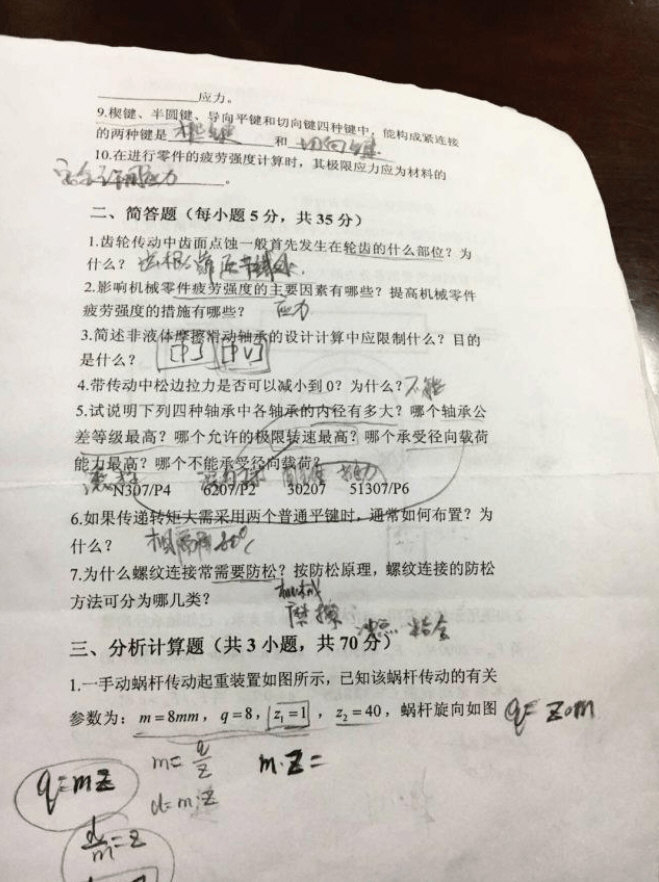 应力。
9.楔键、半圆键、导向平键和切向键四种键中，能构成紧连接
的两种键是 楔键 和 切向键.
10.在进行零件的疲劳强度计算时，其极限应力应为材料的
应力 。
二、简答题（每小题5分，共35分）
1.齿轮传动中齿面点蚀一般首先发生在轮齿的什么部位？为
什么？
2.影响机械零件疲劳强度的主要因素有哪些？提高机械零件
疲劳强度的措施有哪些？ 应力
3.简述非液体摩擦滑动轴承的设计计算中应限制什么？目的
是什么？ [P] [PV]
4.带传动中松边拉力是否可以减小到0？为什么？不能
5.试说明下列四种轴承中各轴承的内径有多大？哪个轴承公
差等级最高？哪个允许的极限转速最高？哪个承受径向载荷
能力最高？哪个不能承受径向载荷？
N307/P4 6207/P2 30207 51307/P6
6.如果传递转矩大需采用两个普通平键时，通常如何布置？为
什么？ 相隔
7.为什么螺纹连接常需要防松？按防松原理，螺纹连接的防松
方法可分为哪几类？ 机械
摩擦
三、分析计算题（共3小题，共70分）
1.一手动蜗杆传动起重装置如图所示，已知该蜗杆传动的有关
参数为：m=8mm，q=8，z₁=1，z₂=40，蜗杆旋向如图
m= q/z m·z=
q=mz
d=mz
d/m=z